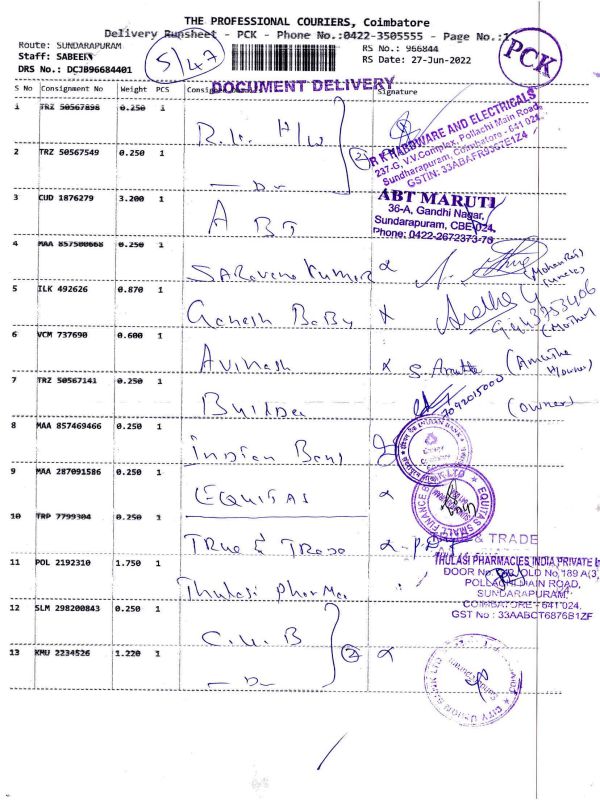 THE PROFESSIONAL COURIERS, Coimbatore
Delivery Runsheet - PCK - Phone No.:0422-3505555 - Page No.:1
Route: SUNDARAPURAM
Staff: SABEEN
DRS No.: DCJB96684401
5/47
RS No.: 966844
RS Date: 27-Jun-2022
PCK
DOCUMENT DELIVERY
S No Consignment No Weight PCS Signature
1 TRZ 50567898 0.250 1
R.K. H/W
R K HARDWARE AND ELECTRICALS
237-G, V.V.Complex, Pollachi Main Road,
Sundharapuram, Coimbatore - 641 024.
GSTIN: 33ABAFR9367E1Z4
2 TRZ 50567549 0.250 1
2
— Do —
3 CUD 1876279 3.200 1
A B T
ABT MARUTI
36-A, Gandhi Nagar,
Sundarapuram, CBE-024.
Phone: 0422-2672373-76
4 MAA 857500668 0.250 1
Saravana Kumar
(Mohan Raj)
(uncle)
5 ILK 492626 0.870 1
Ganesh Baby
9443753406
(Mother)
6 VCM 737690 0.600 1
Avinash
S. Amutha
(Amutha
7 TRZ 50567141 0.250 1
Builder
7092015000
(owner)
8 MAA 857469466 0.250 1
Indian Bank
INDIAN BANK
9 MAA 287091586 0.250 1
EQUITAS
EQUITAS SMALL FINANCE BANK LTD
10 TRP 7799304 0.250 1
True & Trade
& TRADE
11 POL 2192310 1.750 1
Thulasi Pharma
THULASI PHARMACIES INDIA PRIVATE
DOOR No. OLD No.189 A(3)
POLLACHI MAIN ROAD,
SUNDARAPURAM,
COIMBATORE - 641 024.
GST No : 33AABCT6876B1ZF
12 SLM 298200843 0.250 1
C.U.B
13 KMU 2234526 1.220 1
2
— Do —
CITY UNION BANK LTD